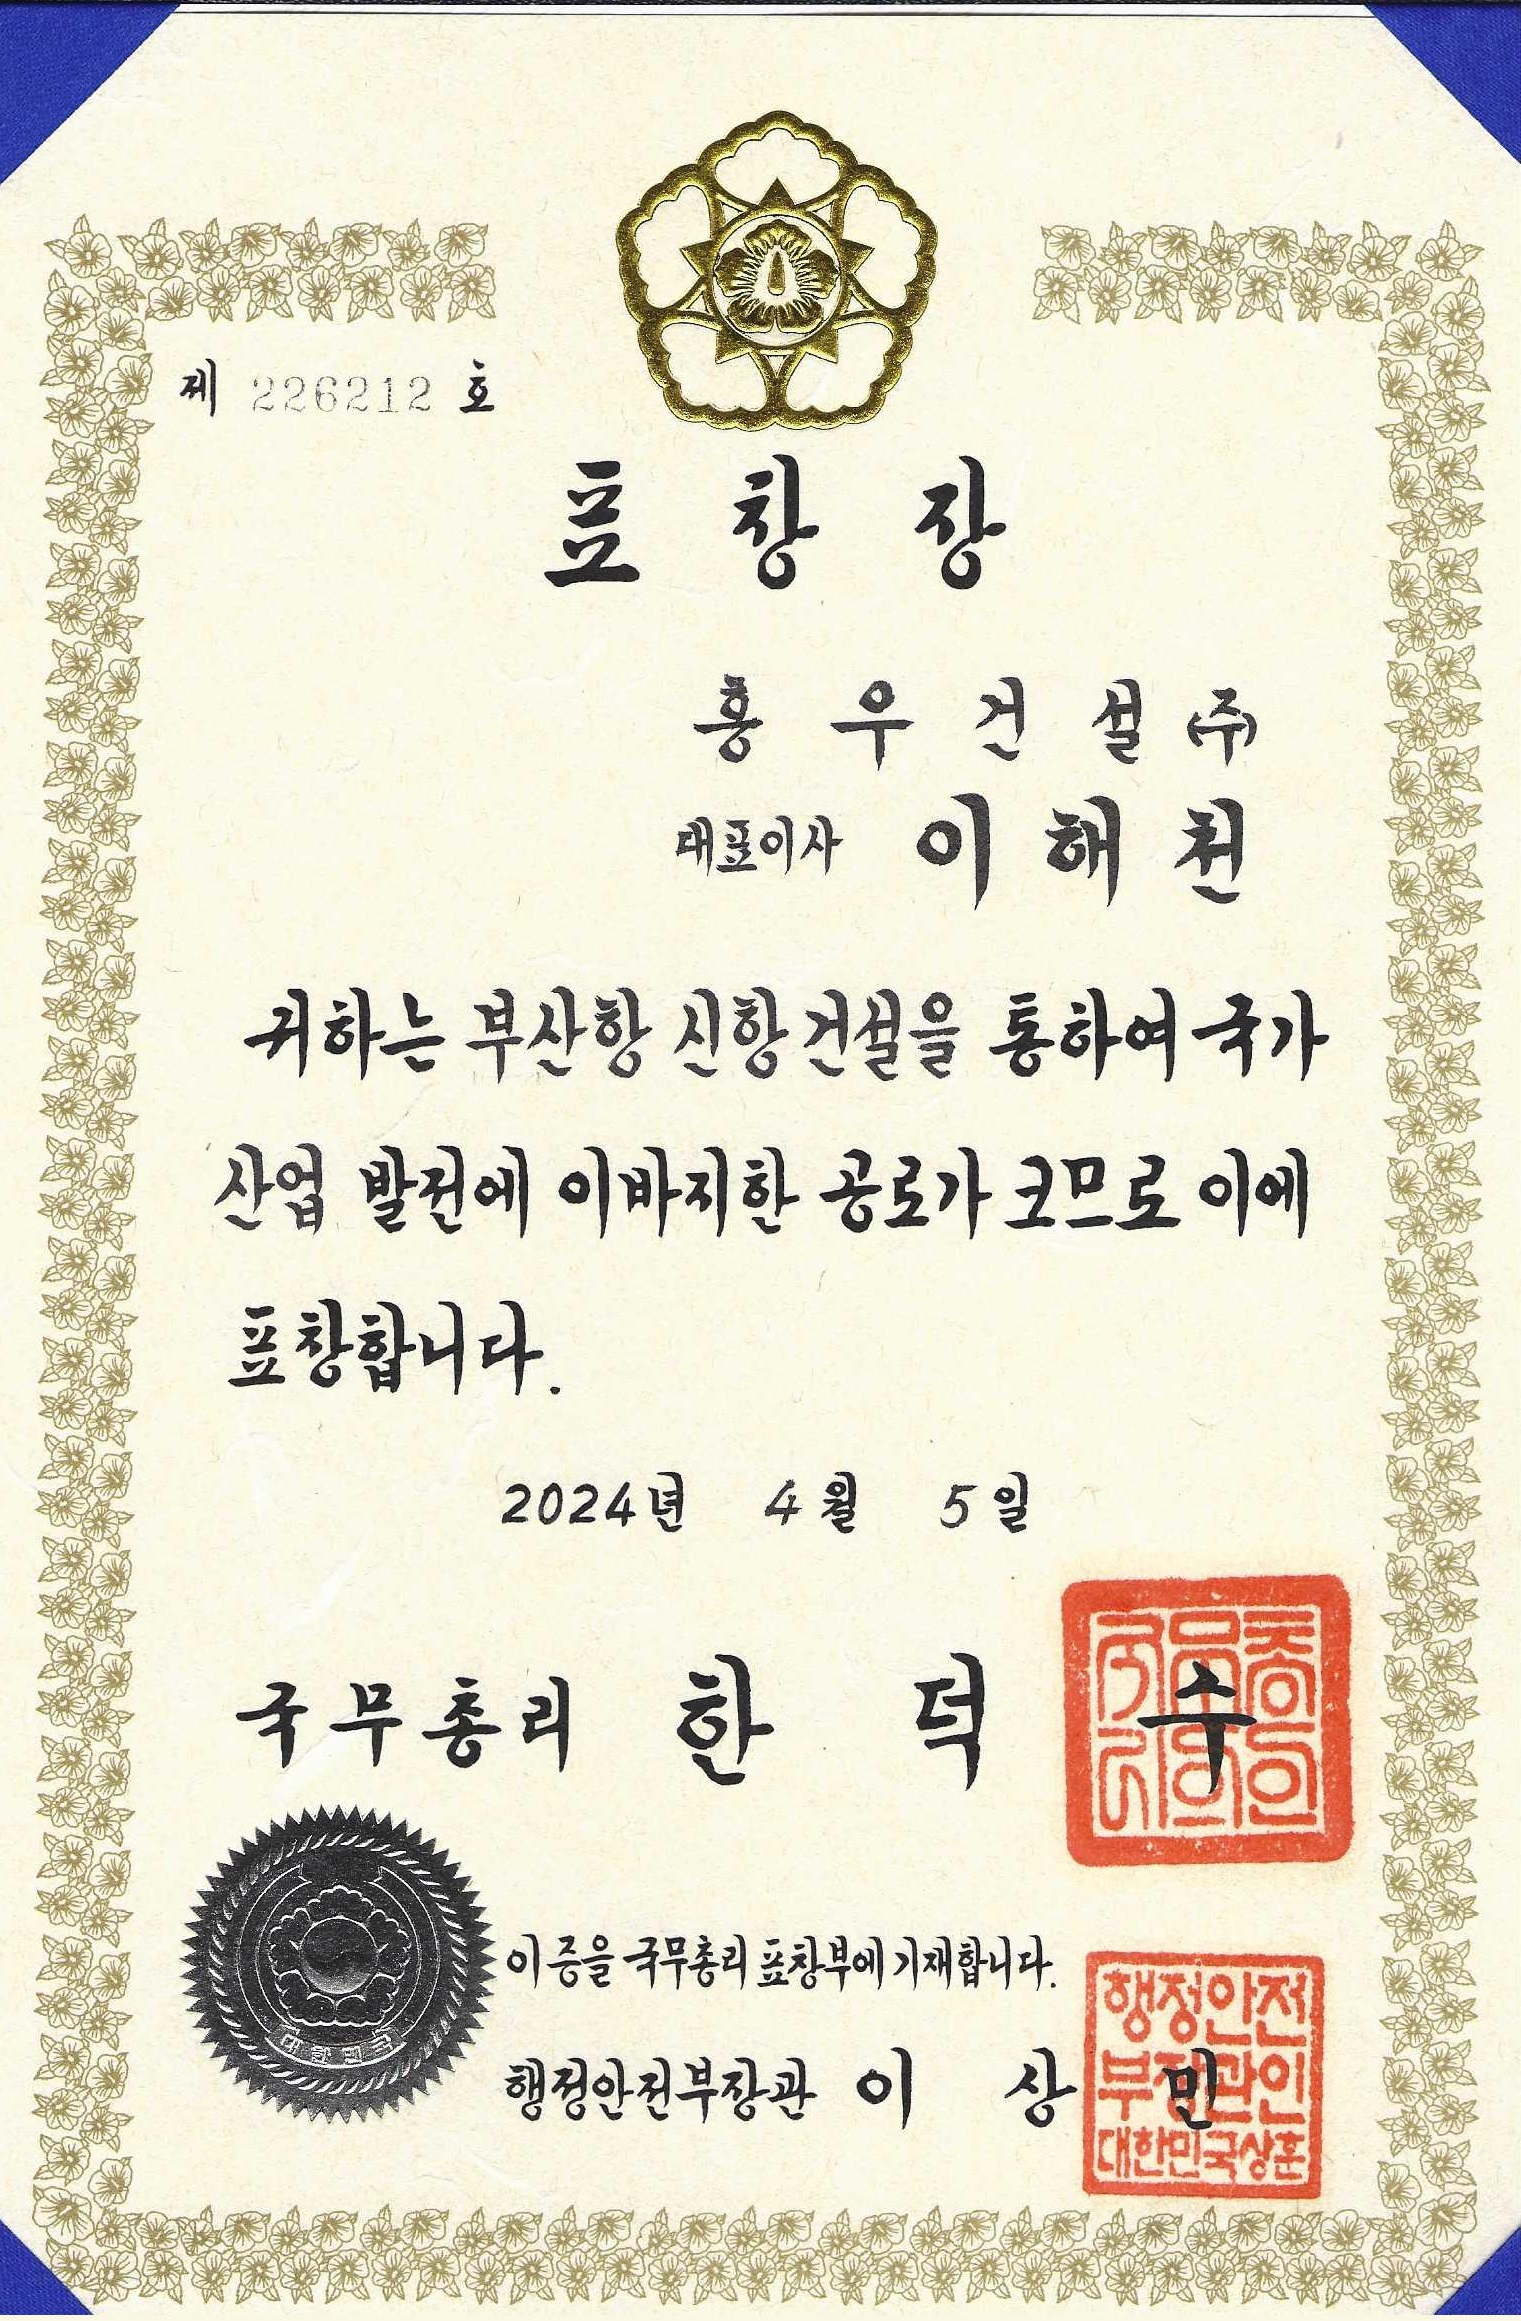 제 226212 호
표 창 장
흥 우 건 설 (주)
대표이사 이 해 천
귀하는 부산항 신항 건설을 통하여 국가
산업 발전에 이바지한 공로가 크므로 이에
표창합니다.
2024년 4월 5일
국무총리 한 덕 수
국무총리의인
이 증을 국무총리 표창부에 기재합니다.
행정안전부장관 이 상 민
행정안전
부장관인
대한민국상훈
대한민국